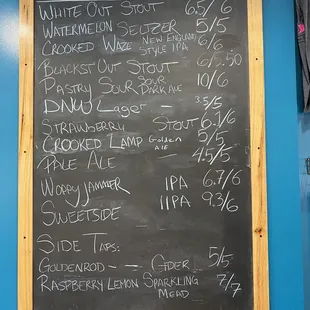 WHITE OUT STOUT 6.5/6
WATERMELON SELTZER 5/5
CROOKED WAZE NEW ENGLAND STYLE IPA 6/6
BLACKST OUT STOUT 6/5.50
PASTRY SOUR SOUR DARK ALE 10/6
DNW LAGER - 3.5/5
STRAWBERRY STOUT 6.1/6
CROOKED LAMP Golden ale 5/5
PALE ALE - 4.5/5
WOBBYJAMMER IPA 6.7/6
SWEETSIDE IIPA 9.3/6
SIDE TAPS:
GOLDENROD -- CIDER 5/5
RASPBERRY LEMON SPARKLING MEAD 7/7